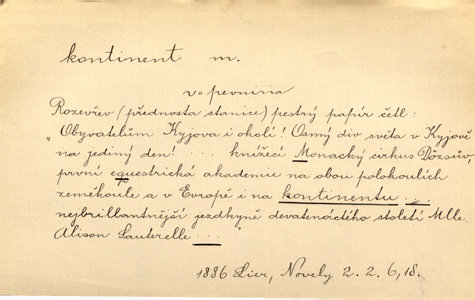 kontinent m.
v = pevnina
Rozevřev (přednosta stanice) pestrý papír četl:
„Obyvatelům Kyjova i okolí! Osmý div světa v Kyjově
na jediný den! . . . knížecí Monacký cirkus Dözsův,
první equestrická akademie na obou polokoulích
zeměkoule a v Evropě i na kontinentu . . .
nejbrillantnější jezdkyně devatenáctého století Mlle.
Alison Sauterelle . . . "
1886 Lier, Novely 2. 2. 6, 18.